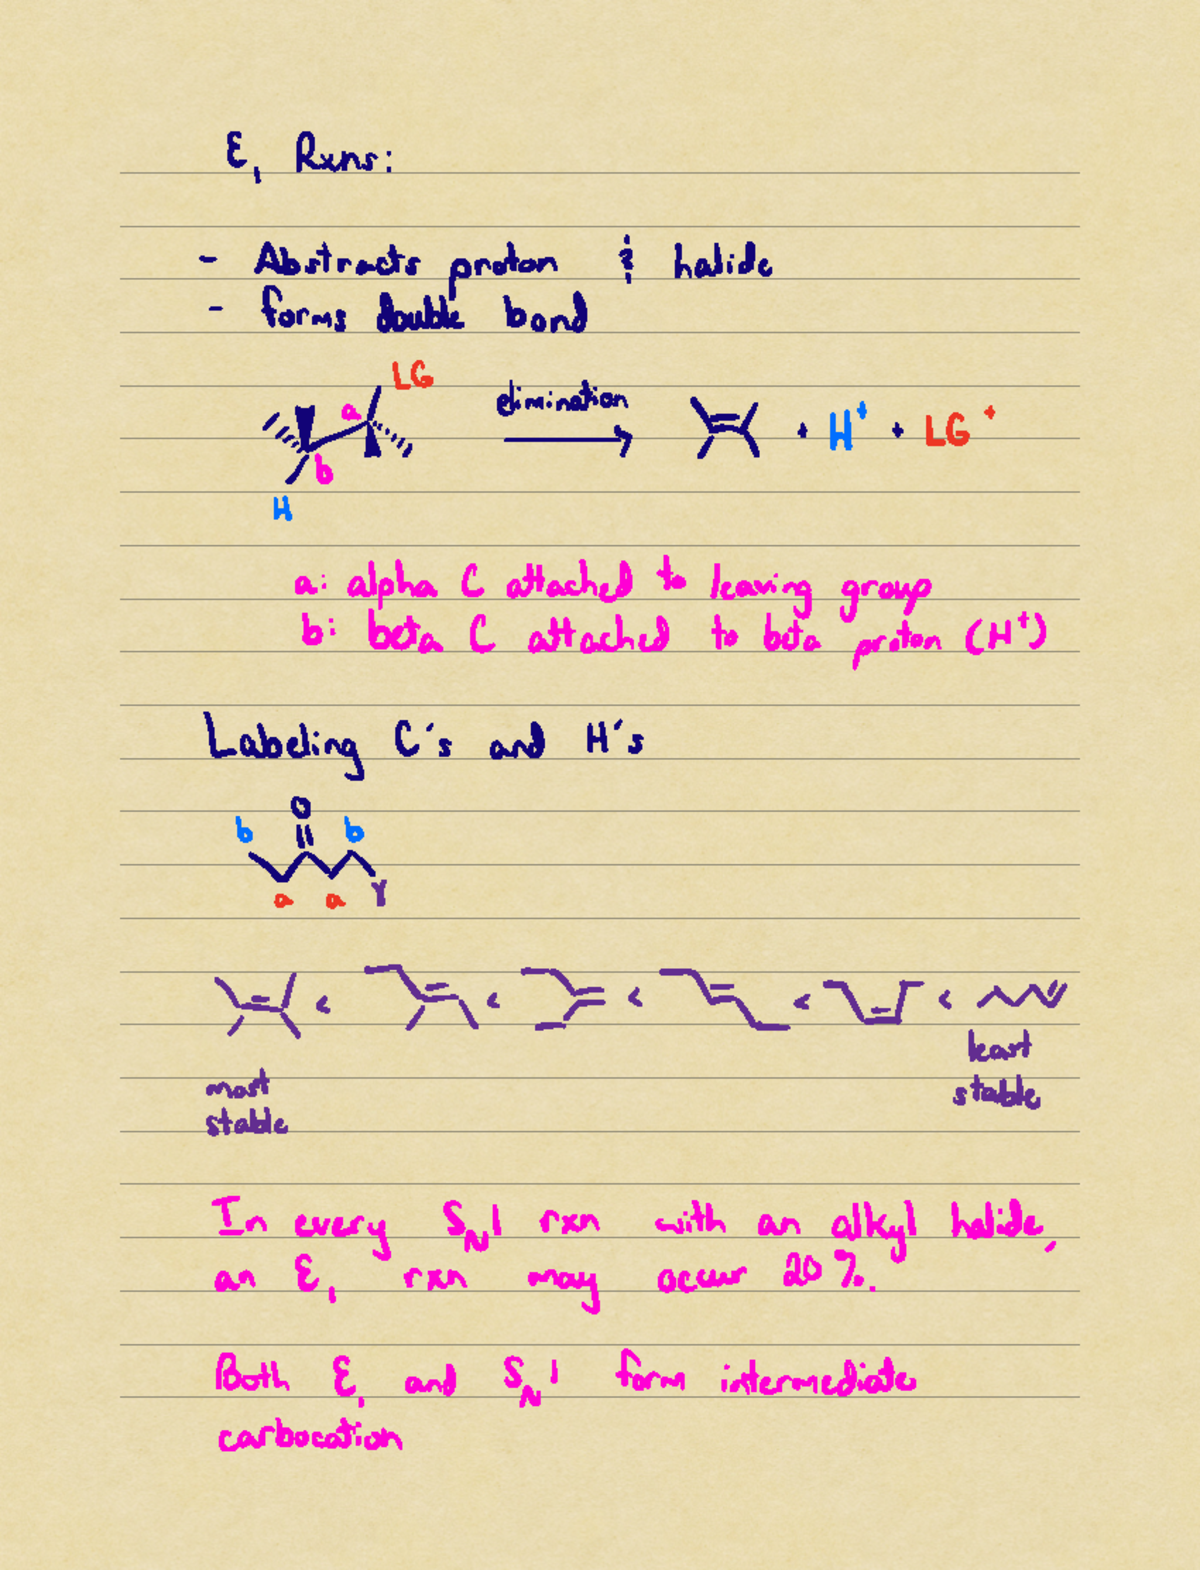 E₁ Rxns:
- Abstracts proton & halide
- forms double bond
LG
a
elimination
+ H⁺ + LG⁺
b
H
a: alpha C attached to leaving group
b: beta C attached to beta proton (H⁺)
Labeling C's and H's
O
b b
a a γ
< < < < <
least
most stable
stable
In every SN1 rxn with an alkyl halide,
an E₁ rxn may occur 20%.
Both E₁ and SN1 form intermediate
carbocation